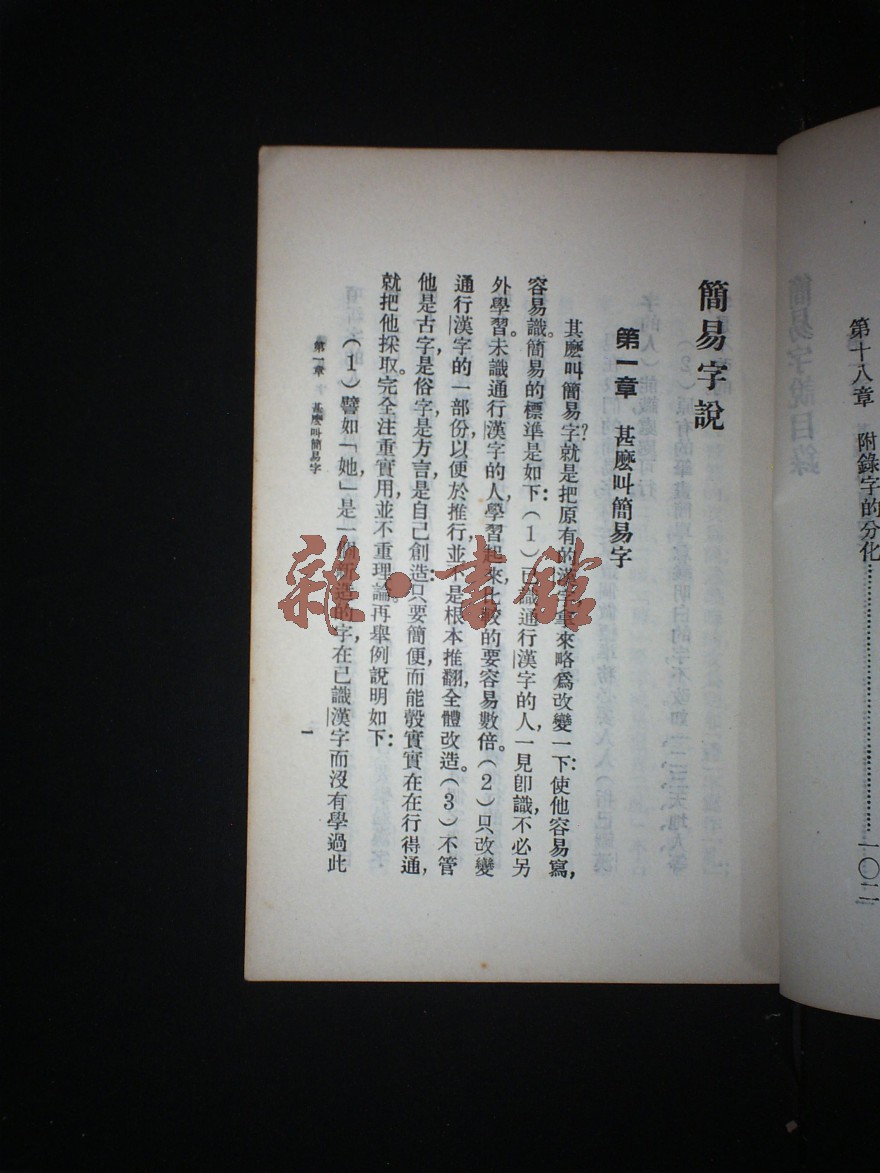 第十八章　附錄字的分化……………………一〇二
簡易字說
第一章　甚麽叫簡易字
甚麽叫簡易字?就是把原有的漢字,拿來略爲改變一下:使他容易寫,
容易識。簡易的標準是如下:(1)已識通行漢字的人,一見卽識,不必另
外學習。未識通行漢字的人學習起來,比較的要容易數倍。(2)只改變
通行漢字的一部份以便於推行,並不是根本推翻,全體改造。(3)不管
他是古字是俗字是方言是自己創造:只要簡便,而能彀實實在在行得通,
就把他採取。完全注重實用,並不重理論。再舉例說明如下:
(1)譬如「她」是一個新造的字,在已識漢字而沒有學過此
第一章　甚麽叫簡易字
一
雜·書館